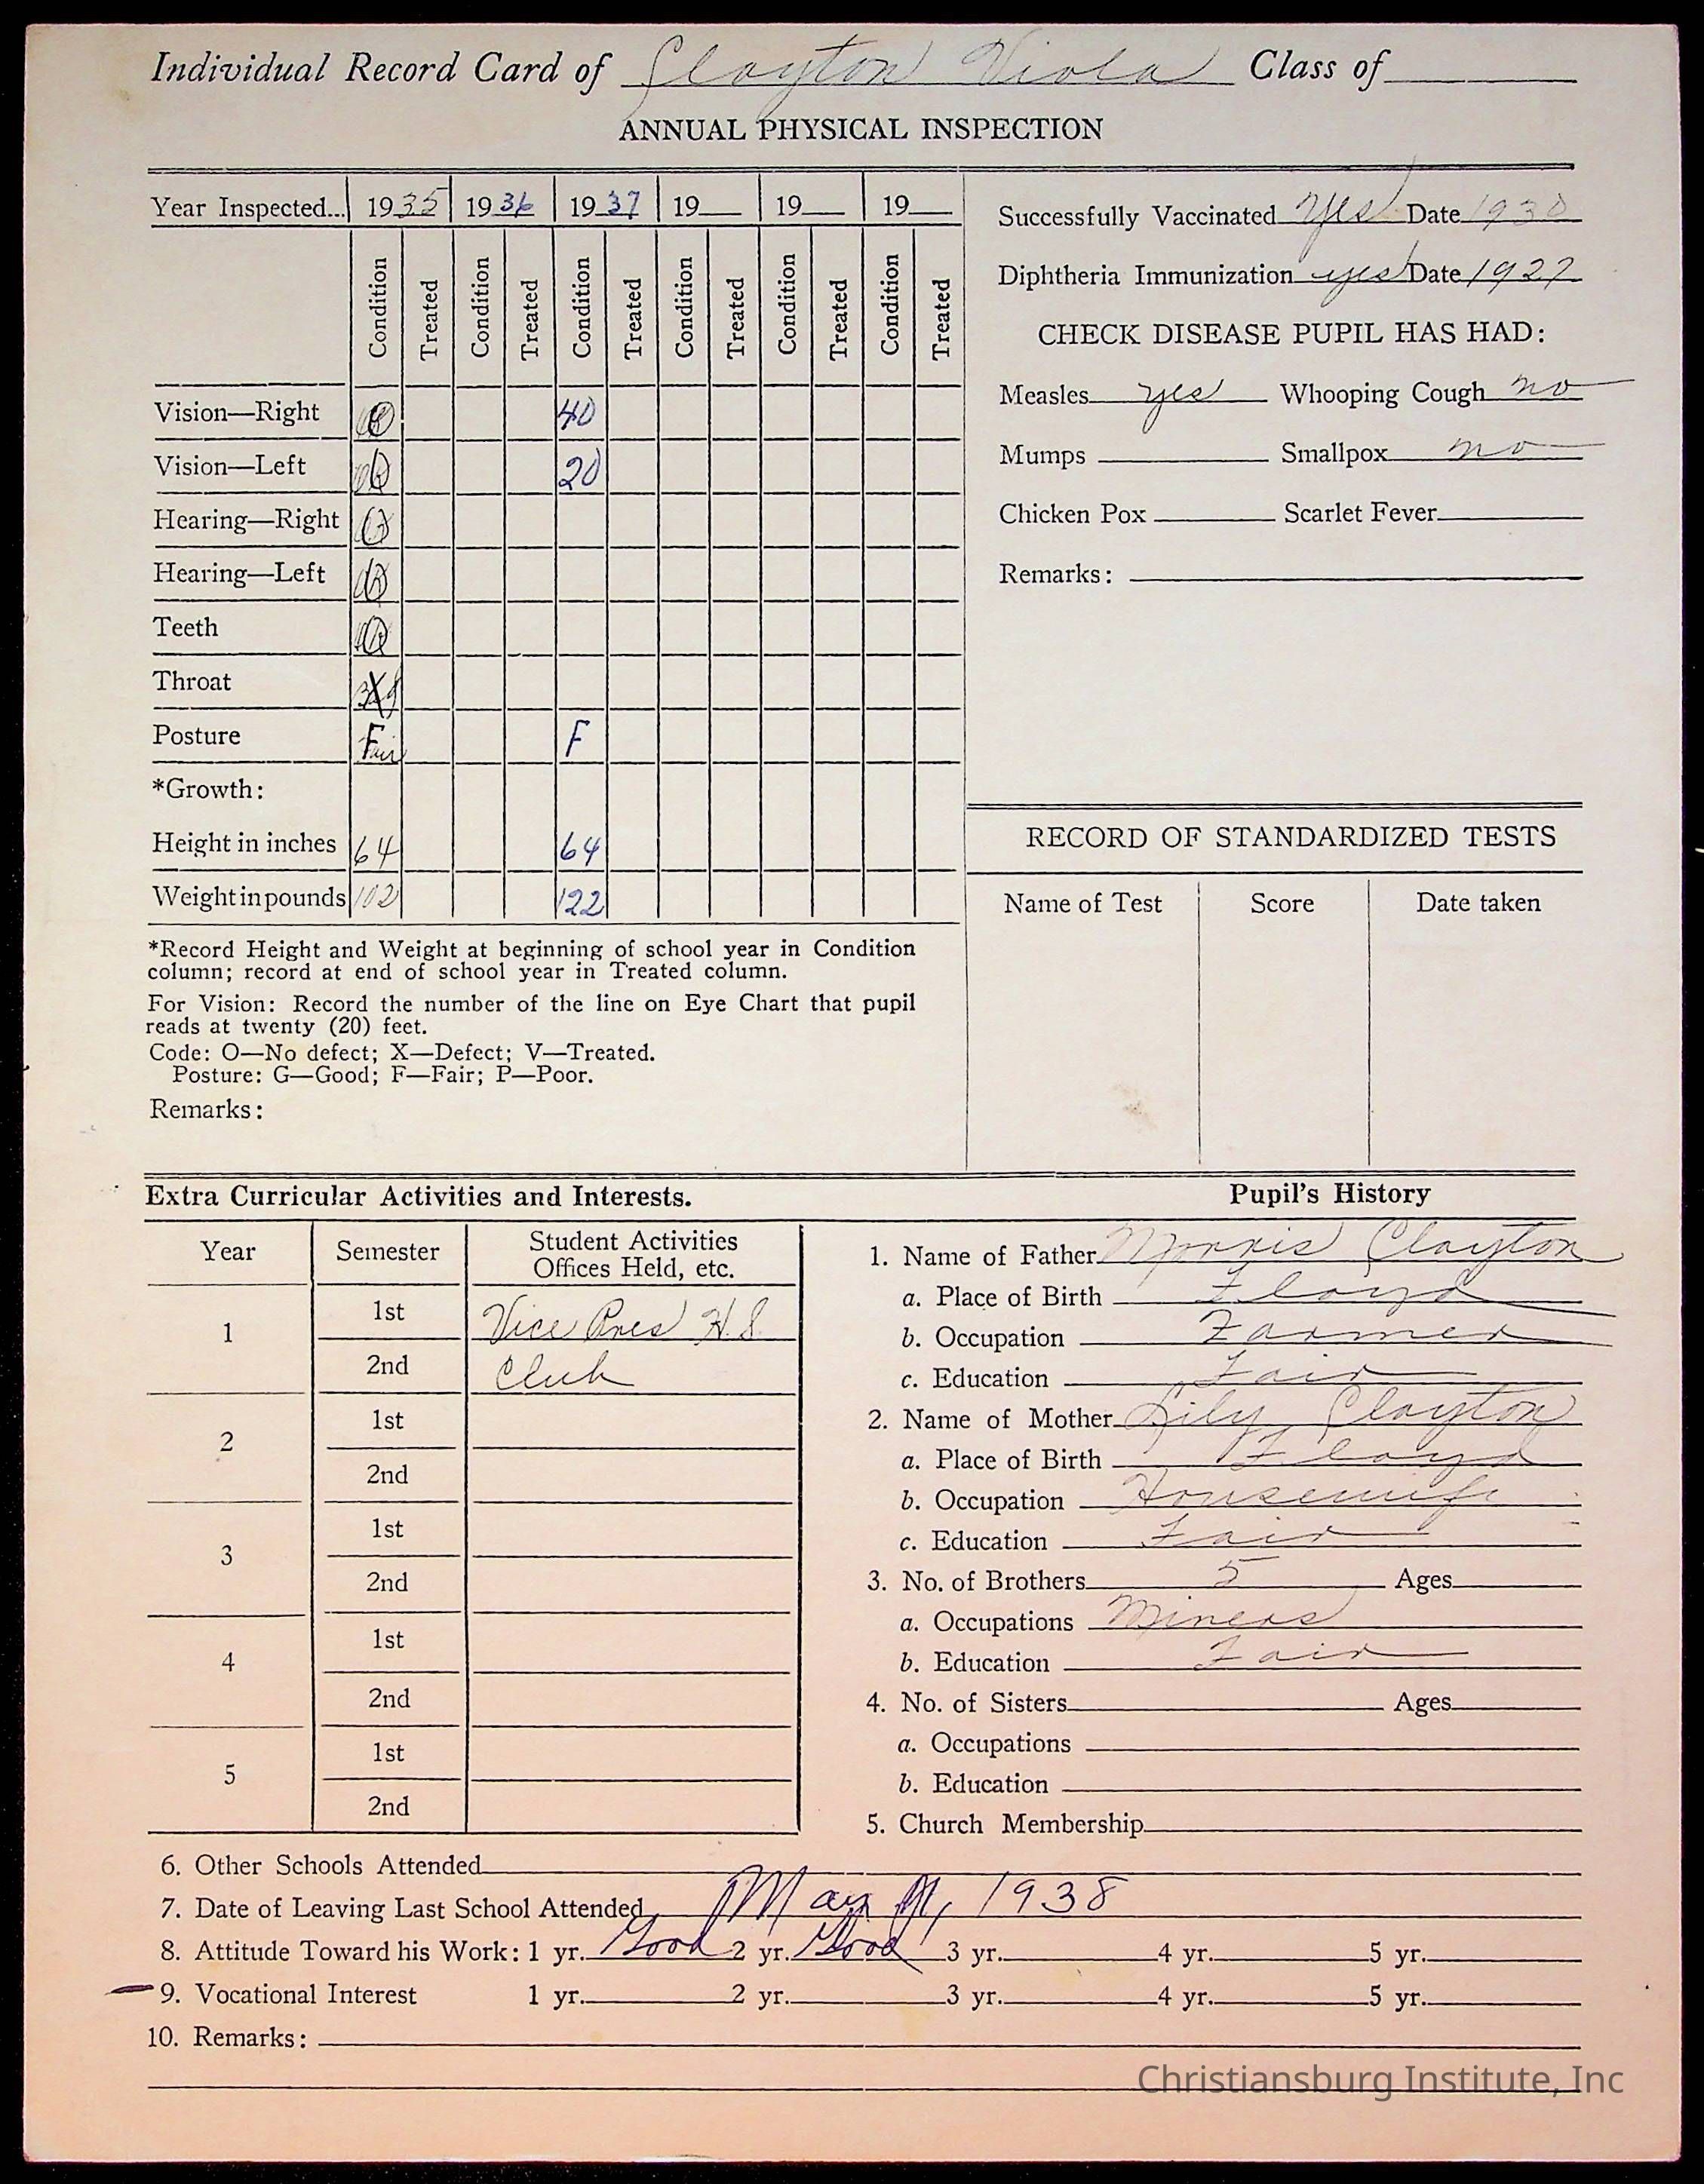 Individual Record Card of Clayton Viola Class of
ANNUAL PHYSICAL INSPECTION
Year Inspected... 1935 1936 1937 19 19 19
Condition Treated Condition Treated Condition Treated Condition Treated Condition Treated Condition Treated
Vision—Right 40
Vision—Left 20
Hearing—Right
Hearing—Left
Teeth
Throat X
Posture Fair F
*Growth:
Height in inches 64 64
Weight in pounds 102 122
*Record Height and Weight at beginning of school year in Condition
column; record at end of school year in Treated column.
For Vision: Record the number of the line on Eye Chart that pupil
reads at twenty (20) feet.
Code: O—No defect; X—Defect; V—Treated.
Posture: G—Good; F—Fair; P—Poor.
Remarks:
Successfully Vaccinated yes Date 1930
Diphtheria Immunization yes Date 1927
CHECK DISEASE PUPIL HAS HAD:
Measles yes Whooping Cough no
Mumps Smallpox no
Chicken Pox Scarlet Fever
Remarks:
RECORD OF STANDARDIZED TESTS
Name of Test Score Date taken
Extra Curricular Activities and Interests.
Year Semester Student Activities
Offices Held, etc.
1 1st Vice Pres H.S.
2nd Club
2 1st
2nd
3 1st
2nd
4 1st
2nd
5 1st
2nd
Pupil's History
1. Name of Father Morris Clayton
a. Place of Birth Floyd
b. Occupation Farmer
c. Education Fair
2. Name of Mother Lily Clayton
a. Place of Birth Floyd
b. Occupation Housewife
c. Education Fair
3. No. of Brothers 5 Ages
a. Occupations Miners
b. Education Fair
4. No. of Sisters Ages
a. Occupations
b. Education
5. Church Membership
6. Other Schools Attended
7. Date of Leaving Last School Attended May 1938
8. Attitude Toward his Work: 1 yr. Good 2 yr. Good 3 yr. 4 yr. 5 yr.
9. Vocational Interest 1 yr. 2 yr. 3 yr. 4 yr. 5 yr.
10. Remarks:
Christiansburg Institute, Inc